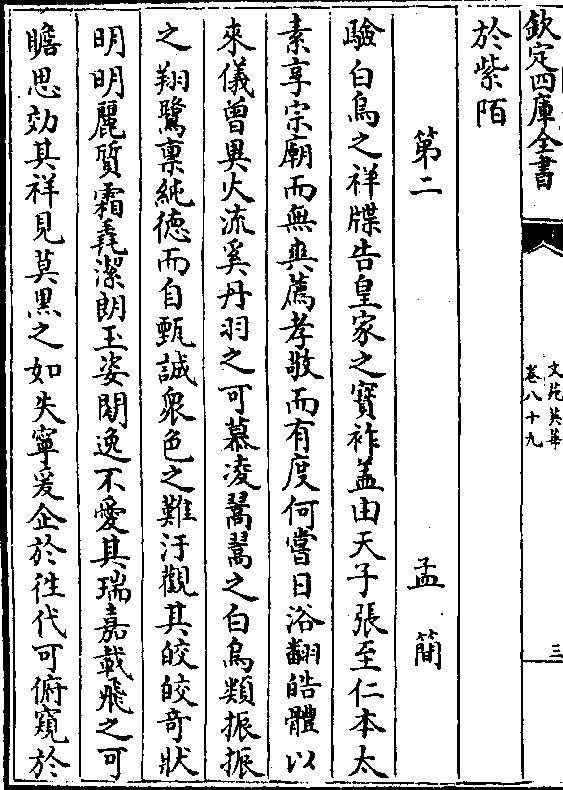 欽定四庫全書
文苑英華
卷八十九
三
於紫陌
第二 孟簡
驗白烏之祥牒告皇家之寳祚盖由天子張至仁本太
素享宗廟而無爽薦孝敬而有度何嘗日浴翻皓體以
來儀曾異火流奚丹羽之可慕凌翯翯之白鳥類振振
之翔鷺禀純徳而自甄誠衆色之難汙觀其皎皎竒狀
明明麗質霜毳潔朗玉姿閑逸不愛其瑞嘉載飛之可
瞻思効其祥見莫黒之如失寧爰企於徃代可俯窺於